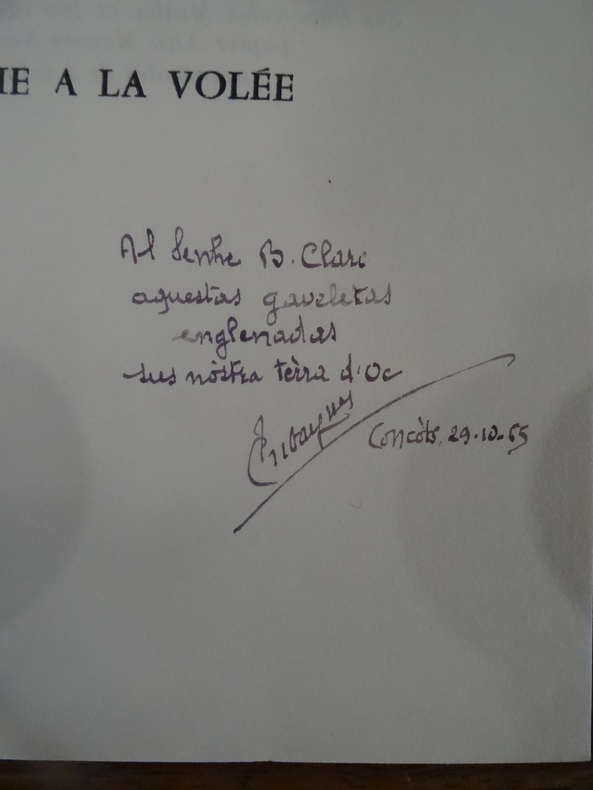 IE A LA VOLÉE
Al Senhe B. Clarc
aquestas gaveletas
englenadas
sus nòstra tèrra d'Oc
Cubaynes
Concòts, 29-10-65